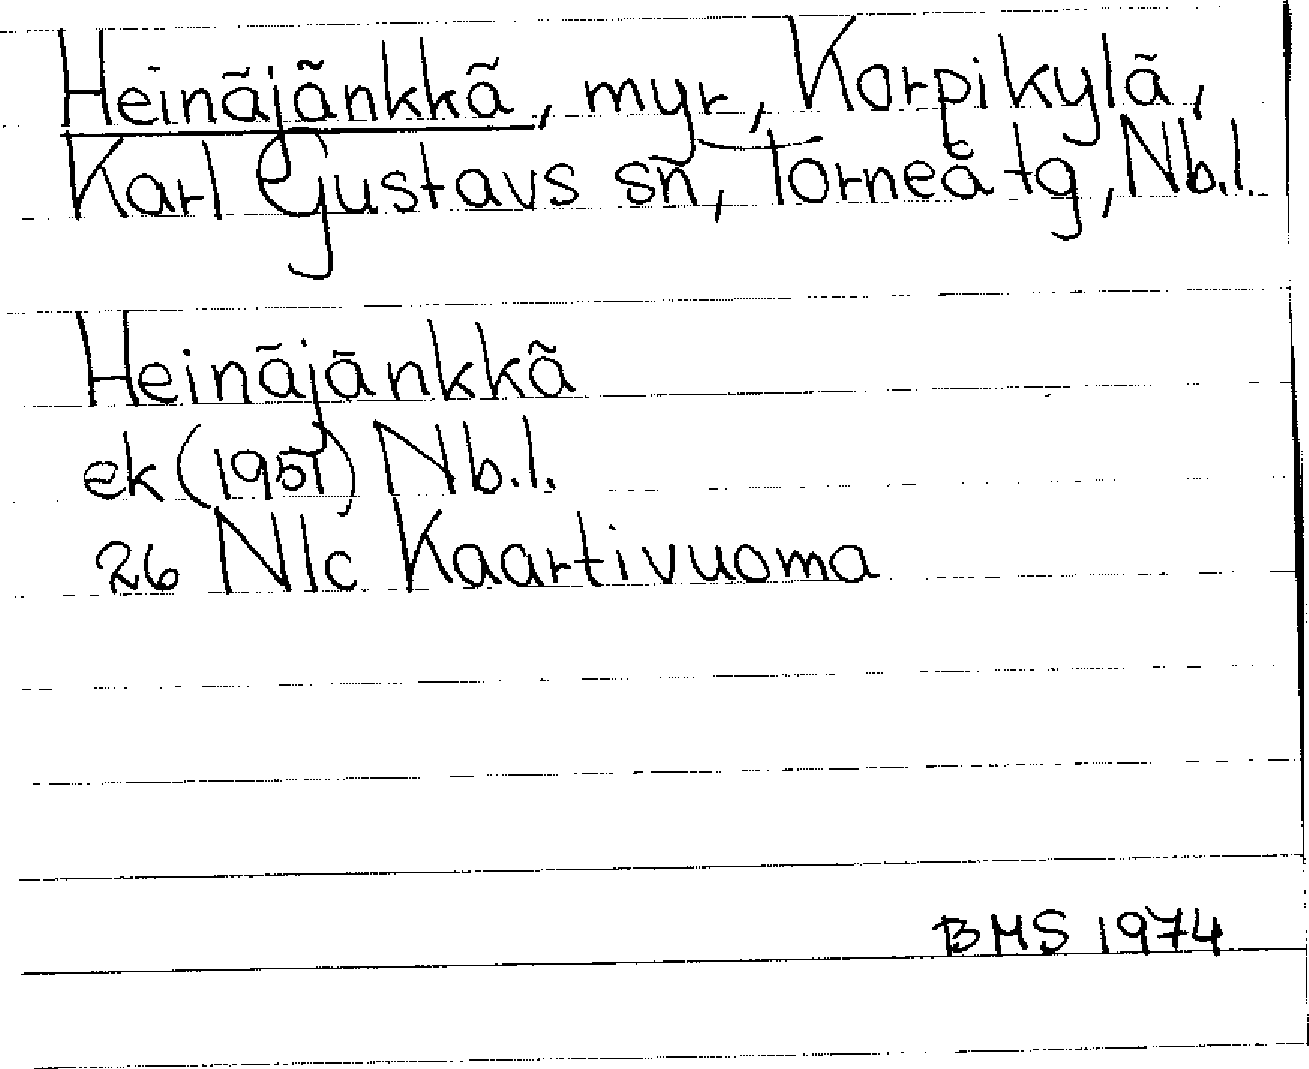 Heinäjänkkä, myr, Korpikylä,
Karl Gustavs sn, Torneå tg, Nb.l.
Heinäjänkkä
ek (1951) Nb.l.
26 Nlc Kaartivuoma
BMS 1974